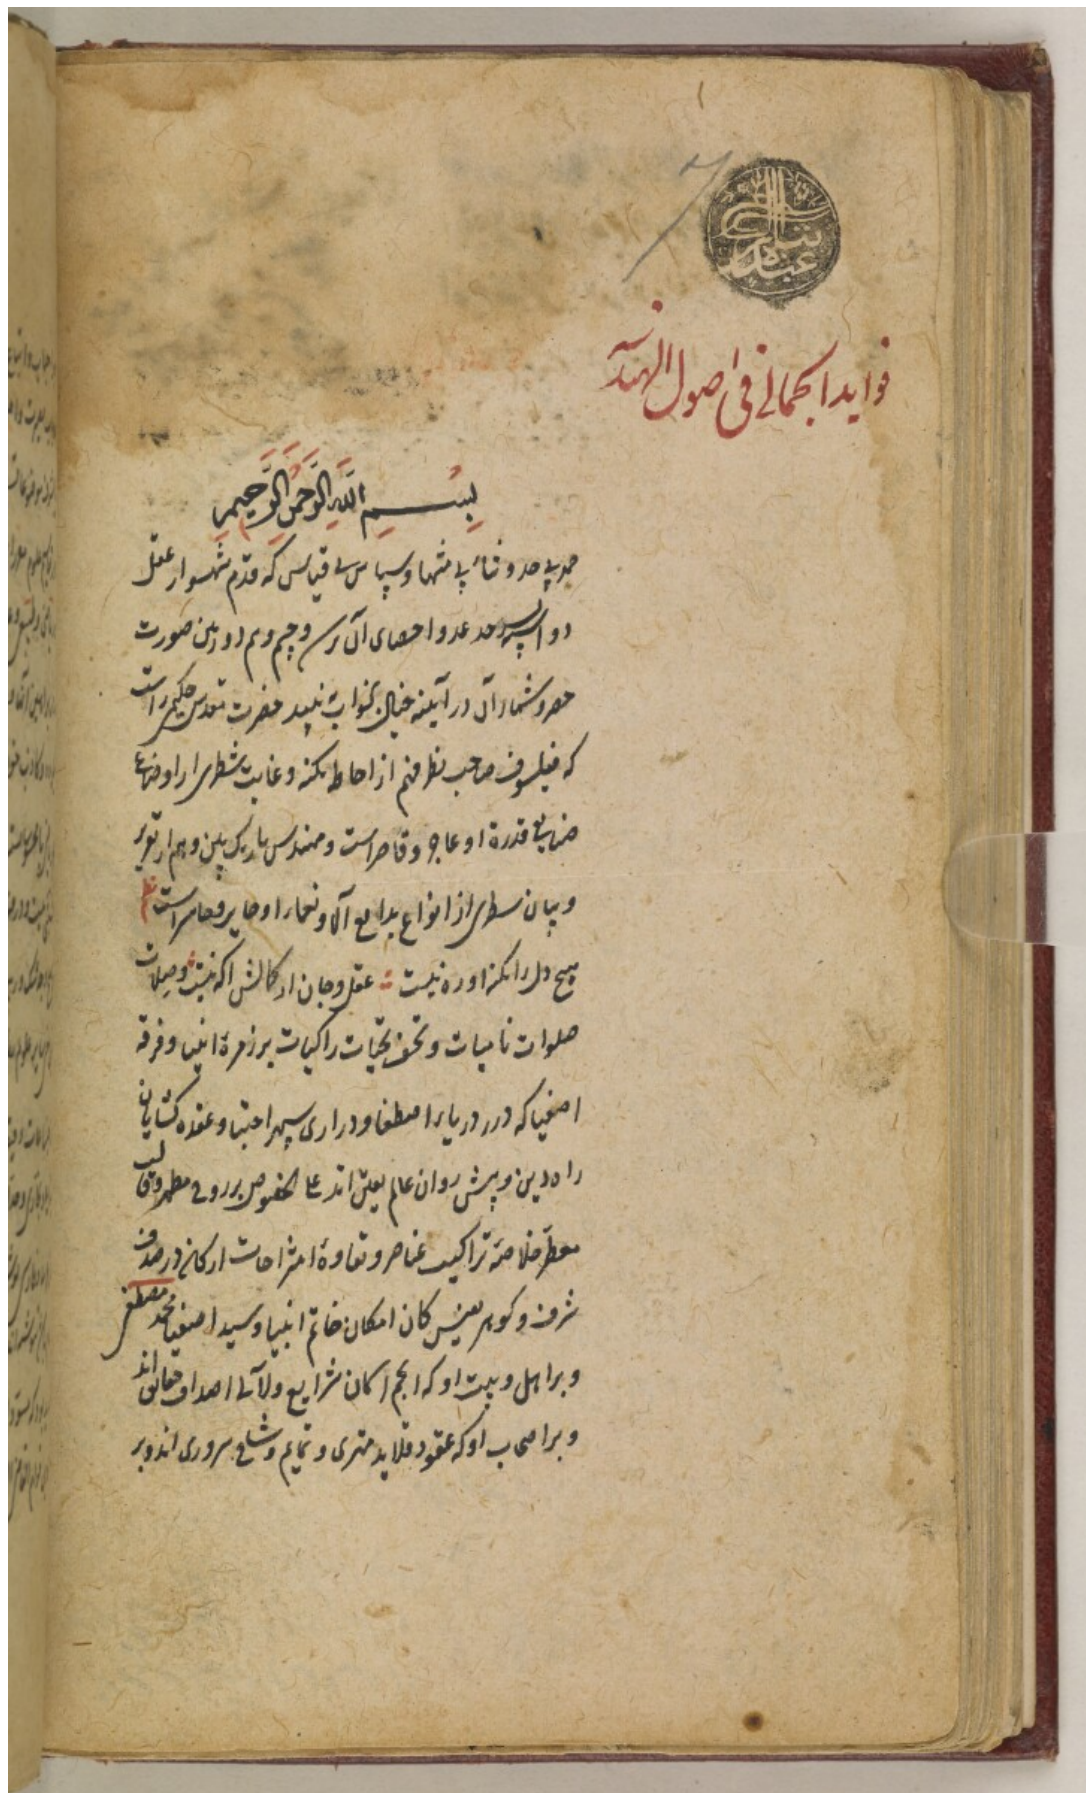 ۱
فواید الجمالی فی اصول الهندسه
بسم الله الرحمن الرحیم
حمد بی حد و ثناء بی منتها و سپاس بی قیاس که قدم شهسوار عقل
دو اسپه حد عد و احصای آن و چشم وهم دوربین صورت
حصر و شمار آن در آینه خیال بخواب نه بیند حضرت مقدس حکیمی راست
که فیلسوف صاحب نظر فهم از احاطه کنه و غایت شطری از اوضاع
صنایع قدرة او عاجز و قاصر است و مهندس باریک بین وهم از تقریر
و بیان سطری از انواع بدایع آلا و نعماء او حایر و حاصر است
هیچ دل را بکنه او ره نیست عقل و جان از کمالش آگه نیست و صلات
صلوات نامیات و تحف تحیات زاکیات بر زمرهٔ انبیا و فرقه
اصفیا که درر دریاء اصطفا و دراری سپهر اجتبا و عقده کشایان
راه دین و پیش روان عالم یقین اند علی الخصوص بر روح مطهر و قالب
معطر خلاصهٔ تراکیب عناصر و نقاوهٔ امتزاجات ارکان در صدف
شرف و کوهر نفیس کان امکان خاتم انبیا و سید اصفیا محمد مصطفی
و بر اهل و بیت او که انجم آسمان شرایع و لآلی اصداف حقایق اند
و بر اصحاب او که عقود قلاید مهتری و تمایم وشاح سروری اند و بر